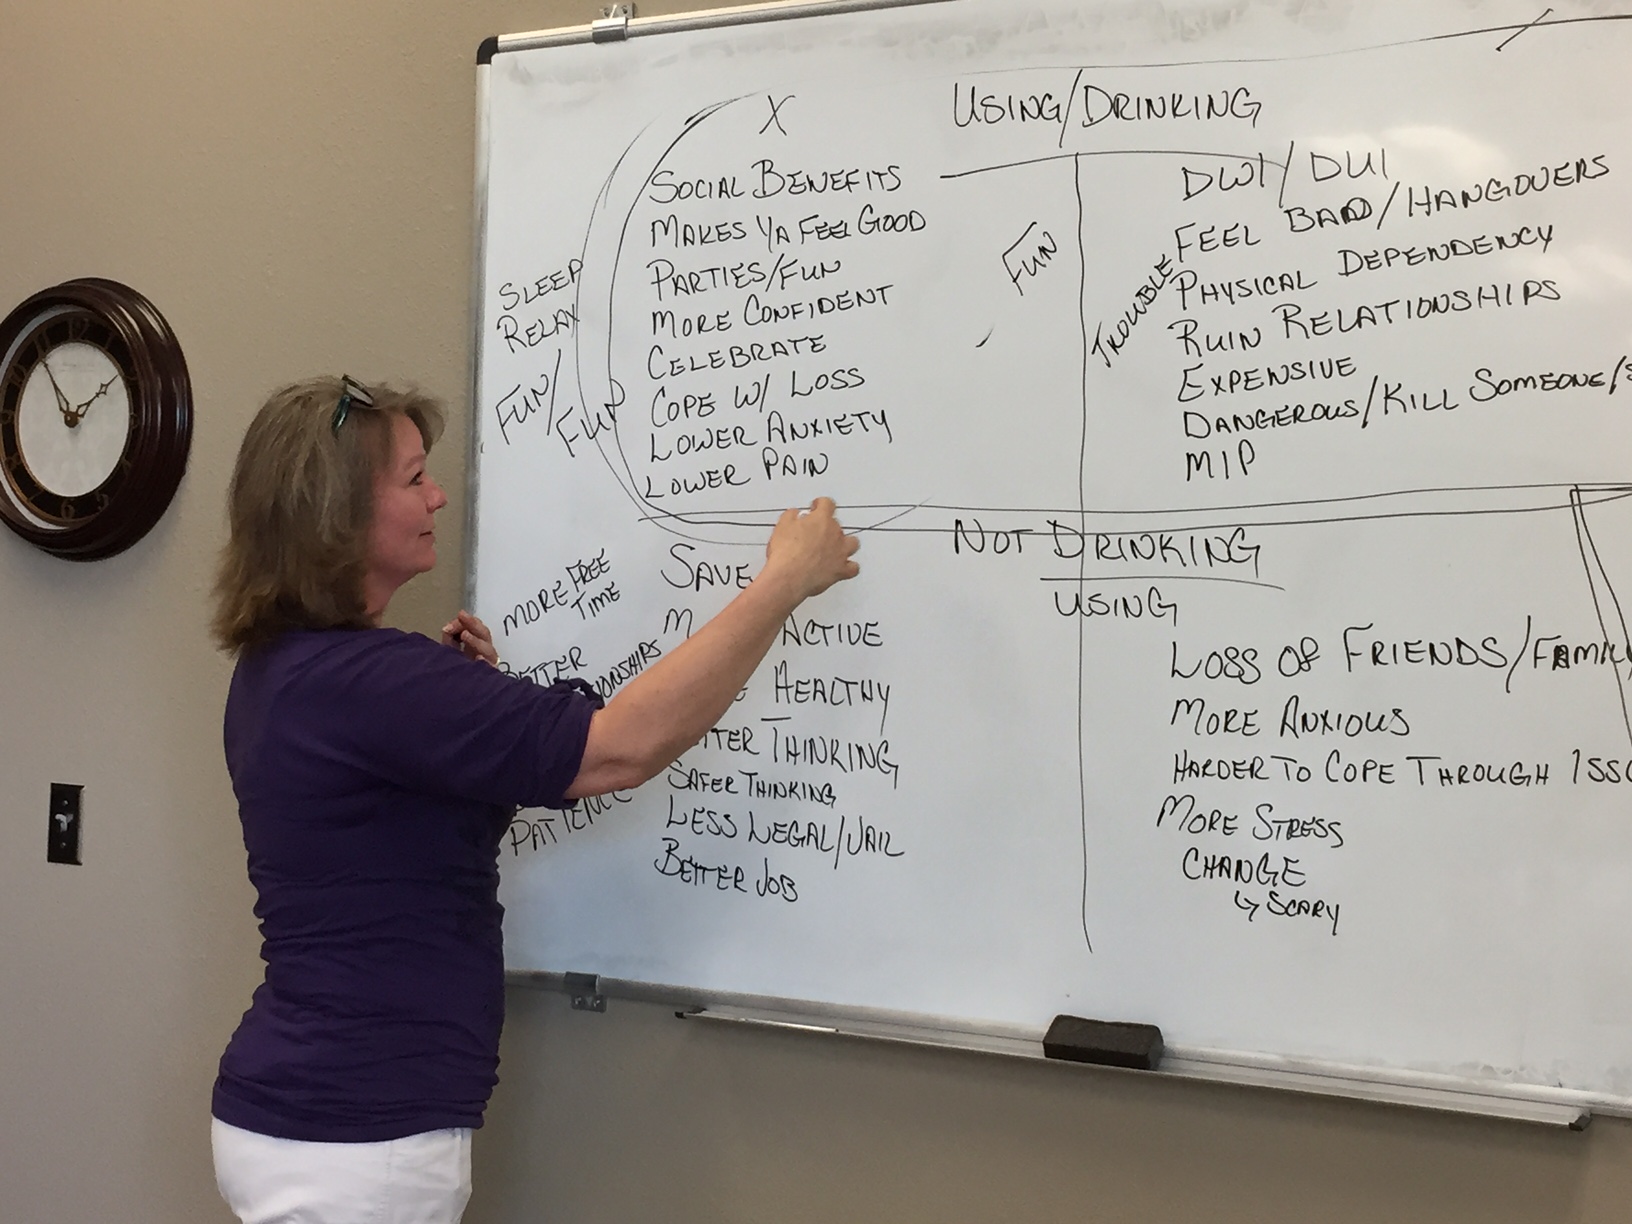 X
USING/DRINKING
SOCIAL BENEFITS
MAKES YA FEEL GOOD
PARTIES/FUN
MORE CONFIDENT
CELEBRATE
COPE W/ LOSS
LOWER ANXIETY
LOWER PAIN
SLEEP
RELAX
FUN/
FUN
FUN
TROUBLE
DWI/DUI
FEEL BAD/HANGOVERS
PHYSICAL DEPENDENCY
RUIN RELATIONSHIPS
EXPENSIVE
DANGEROUS/KILL SOMEONE/
MIP
NOT DRINKING
USING
MORE FREE
TIME
BETTER
PATIENCE
SAVE
ACTIVE
HEALTHY
THINKING
SAFER THINKING
LESS LEGAL/JAIL
BETTER JOB
LOSS OF FRIENDS/FAMILY
MORE ANXIOUS
HARDER TO COPE THROUGH
MORE STRESS
CHANGE
↳ SCARY